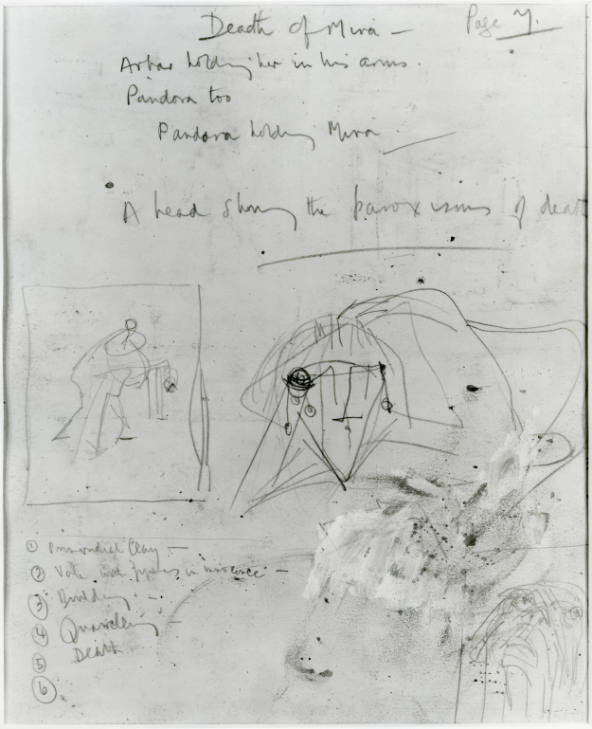 Death of Mira —
Page 7.
holding her in his arms.
Pandora too
Pandora holding Mira
A head showing the paroxisms of death
① Primordial Clay —
② in innocence —
③ Building —
④ Quarreling —
⑤ Death
⑥